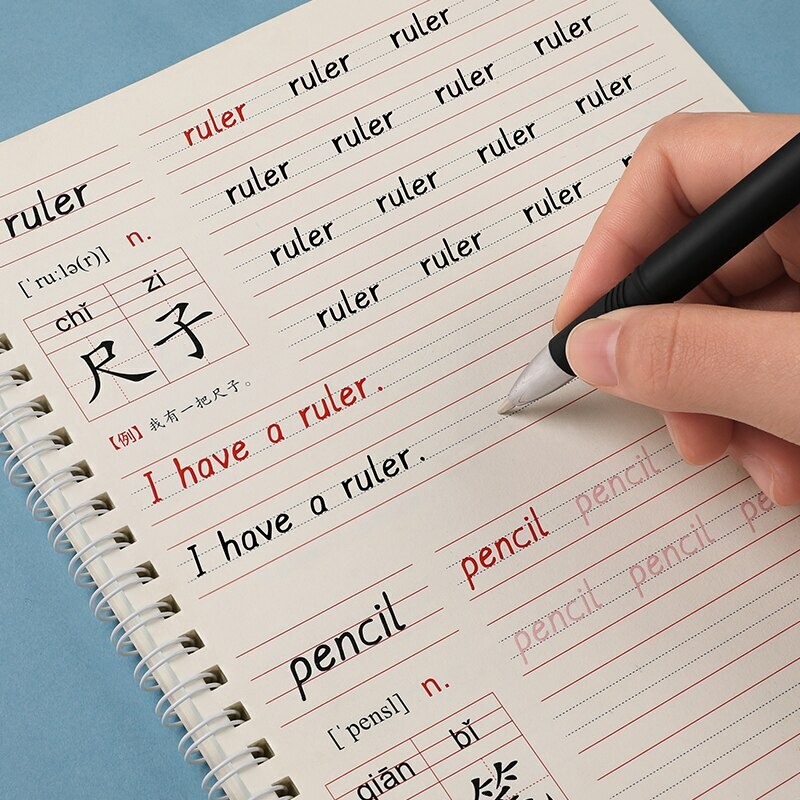 ruler
['ru:lə(r)] n.
chǐ zi
尺子
【例】我有一把尺子。
ruler ruler ruler
ruler ruler ruler ruler
ruler ruler ruler ruler
ruler ruler ruler
I have a ruler.
I have a ruler.
pencil
['pensl] n.
qiān bǐ
pencil pencil
pencil pencil pe